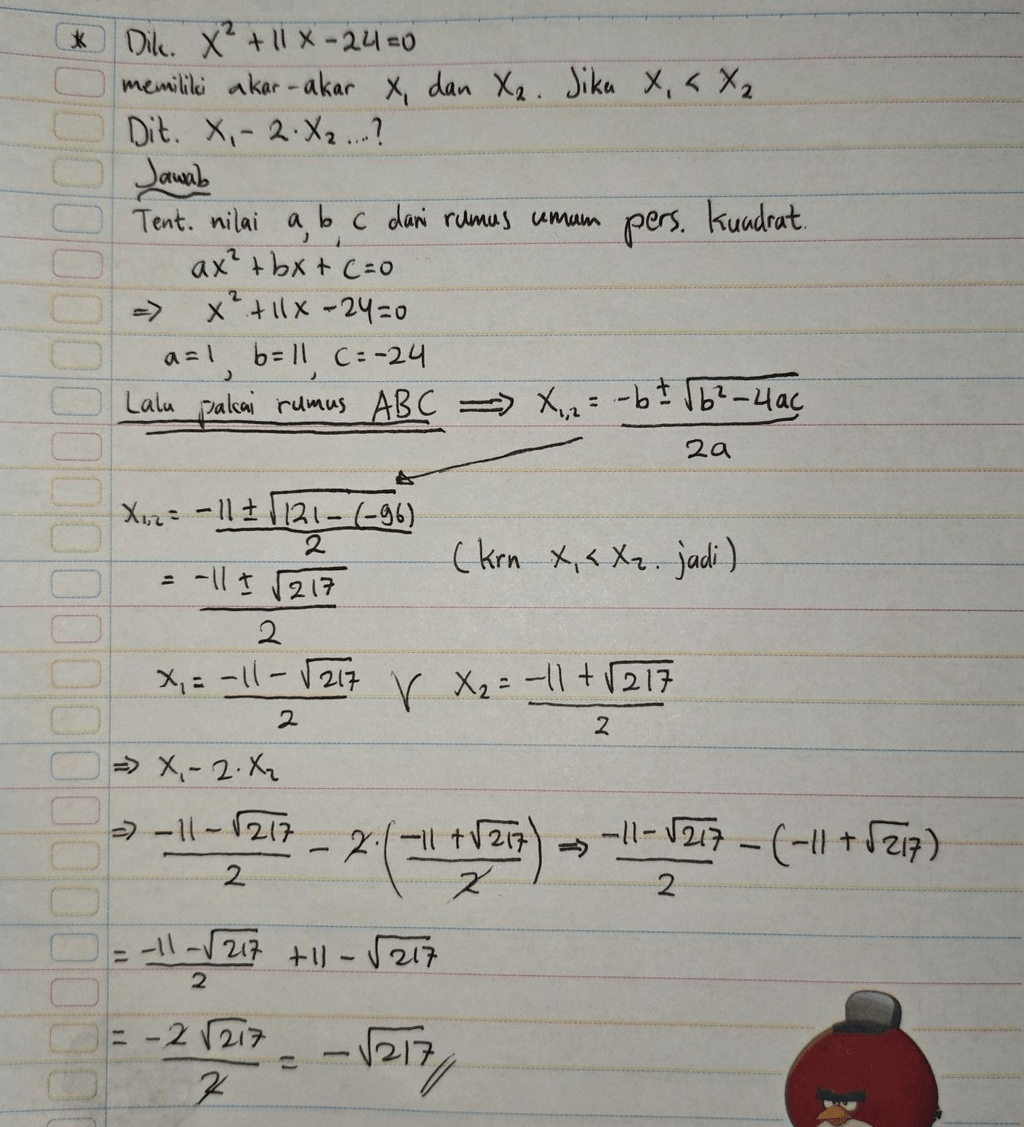 * Dik. x² + 11x - 24 = 0
memiliki akar-akar x₁ dan x₂. Jika x₁ < x₂
Dit. x₁ - 2·x₂ ...?
Jawab
Tent. nilai a, b, c dari rumus umum pers. kuadrat.
ax² + bx + c = 0
⇒ x² + 11x - 24 = 0
a = 1, b = 11, c = -24
Lalu pakai rumus ABC ⇒ x₁,₂ = (-b ± √(b² - 4ac))/2a
x₁,₂ = (-11 ± √(121 - (-96)))/2
(krn x₁ < x₂. jadi)
= (-11 ± √217)/2
x₁ = (-11 - √217)/2 ∨ x₂ = (-11 + √217)/2
⇒ x₁ - 2·x₂
⇒ (-11 - √217)/2 - 2·((-11 + √217)/2) ⇒ (-11 - √217)/2 - (-11 + √217)
= (-11 - √217)/2 + 11 - √217
= (-2√217)/2 = -√217//